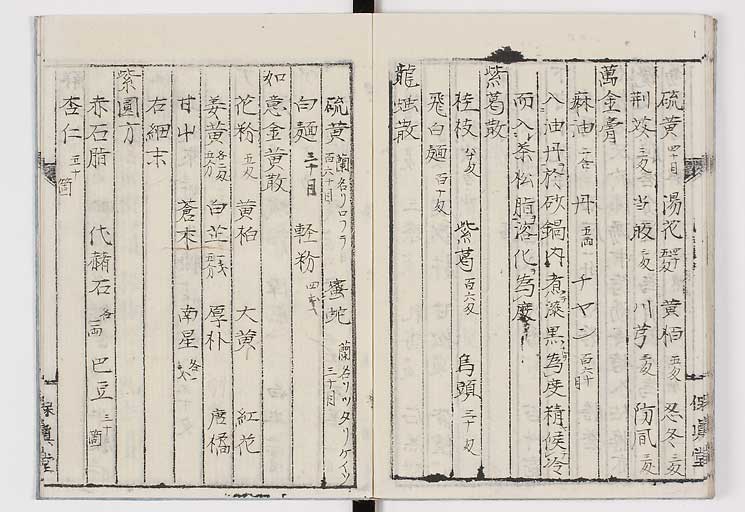 硫黄 四十目 湯花 黄栢 五匁 忍冬 三匁
荊芥 三匁 当皈 三匁 川芎 三匁 防風 三匁
萬金膏
麻油 二合 丹 五両 チヤン 百六十
入油丹於砂鍋内煮藻黒為度稍候冷
而入茶松脂溶化為度
紫葛散
桂枝 八匁 紫葛 百六匁 烏頭 三十匁
飛白麺 百十匁
龍蛇散
硫黄 蘭名リロフラ 百六十目 蜜蛇 蘭名リツタリケイツ 三十目
白麺 三十目 軽粉
如意金黄散
花粉 五匁 黄柏 大黄 紅花
姜黄 各五匁 白芷 厚朴 唐橘
甘中 蒼朮 南星
右細末
紫圓方
赤石脂 代赭石 各一両 巴豆 三十箇
杏仁 五十箇
保真堂
保真堂